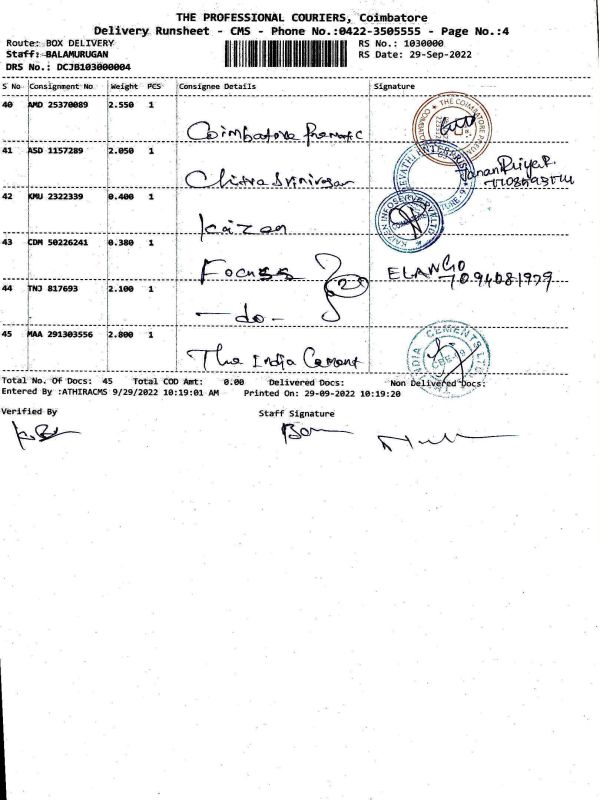 THE PROFESSIONAL COURIERS, Coimbatore
Delivery Runsheet - CMS - Phone No.:0422-3505555 - Page No.:4
Route: BOX DELIVERY RS No.: 1030000
Staff: BALAMURUGAN RS Date: 29-Sep-2022
DRS No.: DCJB103000004
S No Consignment No Weight PCS Consignee Details Signature
40 AMD 25370089 2.550 1
Coimbatore
41 ASD 1157289 2.050 1
Chitra Srinivasan
42 KMU 2322339 0.400 1
Kaizen
43 CDM 50226241 0.380 1
Focuss ELANGO
44 TNJ 817693 2.100 1
-do-
45 MAA 291303556 2.800 1
The India Cement
Total No. Of Docs: 45 Total COD Amt: 0.00 Delivered Docs: Non Delivered Docs:
Entered By :ATHIRACMS 9/29/2022 10:19:01 AM Printed On: 29-09-2022 10:19:20
Verified By Staff Signature